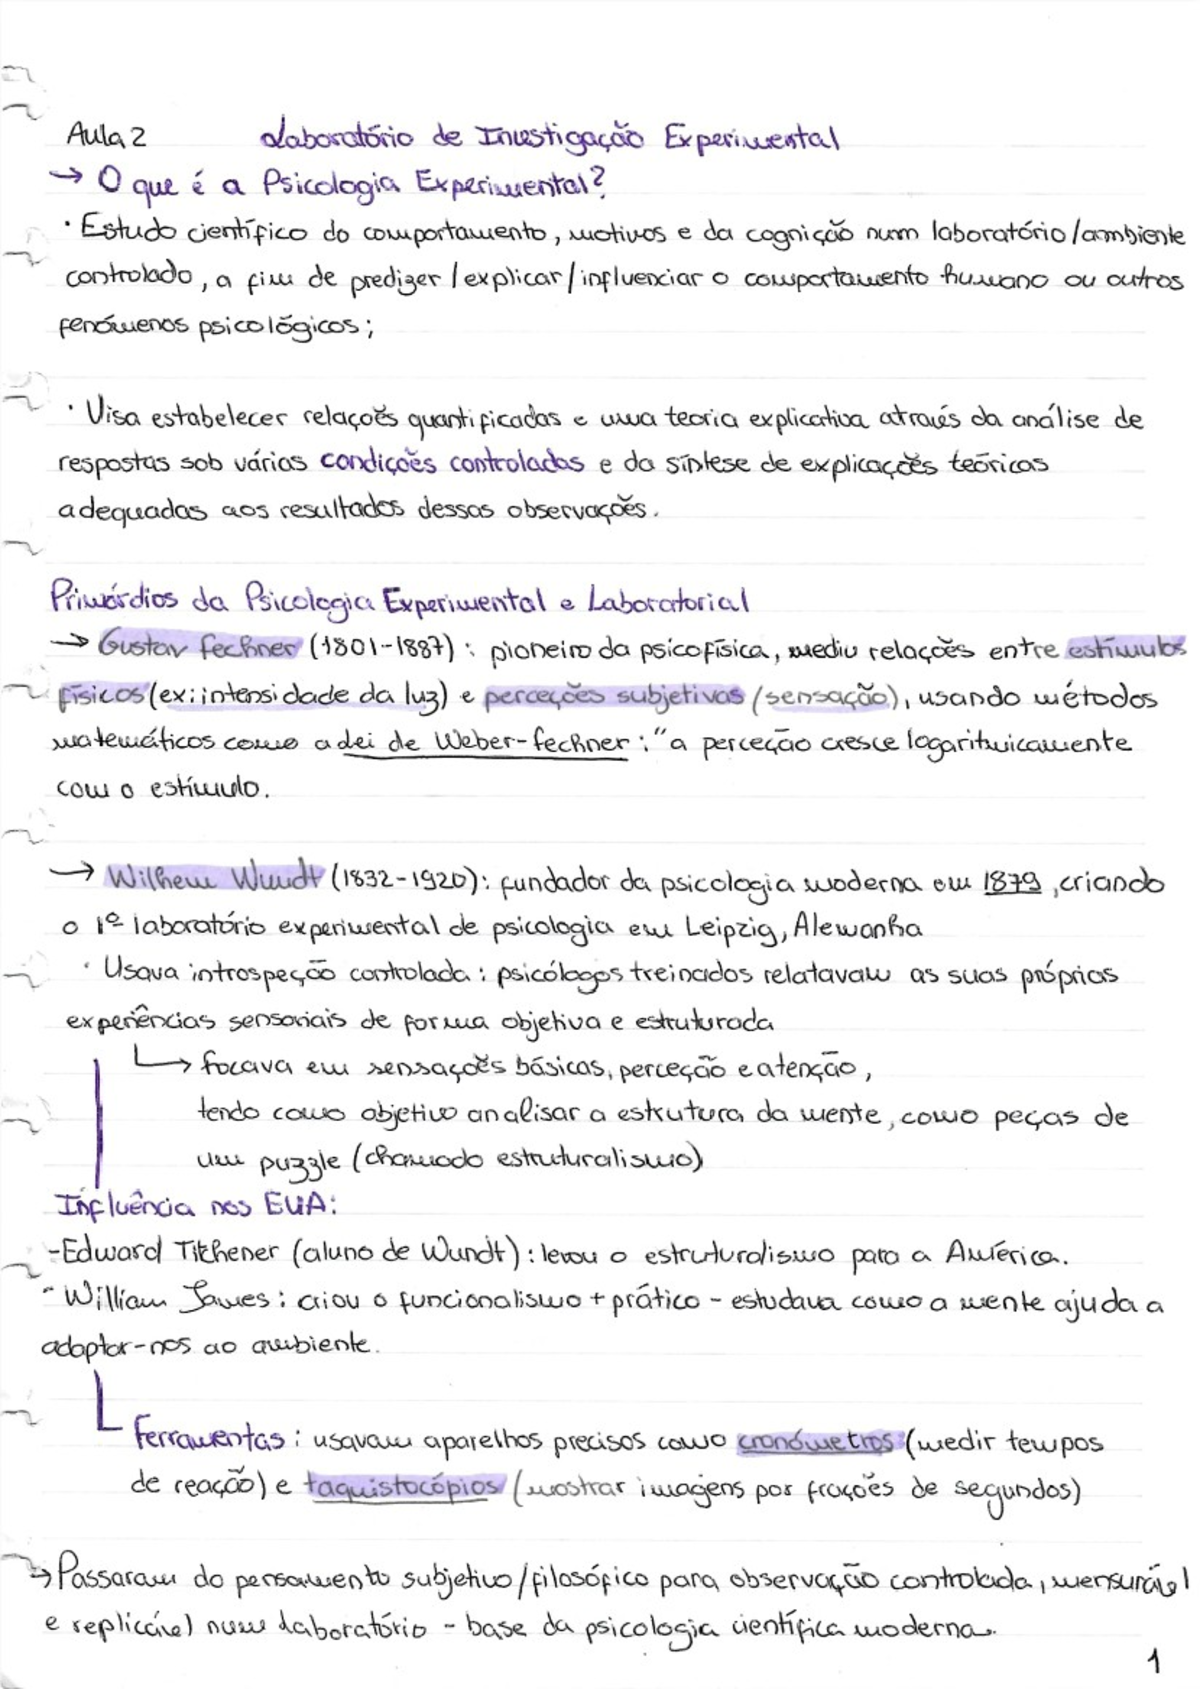 Aula 2 Laboratório de Investigação Experimental
→ O que é a Psicologia Experimental?
· Estudo científico do comportamento, motivos e da cognição num laboratório/ambiente
controlado, a fim de predizer/explicar/influenciar o comportamento humano ou outros
fenómenos psicológicos;
· Visa estabelecer relações quantificadas e uma teoria explicativa através da análise de
respostas sob várias condições controladas e da síntese de explicações teóricas
adequadas aos resultados dessas observações.
Primórdios da Psicologia Experimental e Laboratorial
→ Gustav Fechner (1801-1887): pioneiro da psicofísica, mediu relações entre estímulos
físicos (ex: intensidade da luz) e perceções subjetivas (sensação), usando métodos
matemáticos como a lei de Weber-Fechner: "a perceção cresce logaritmicamente
com o estímulo.
→ Wilhem Wundt (1832-1920): fundador da psicologia moderna em 1879, criando
o 1º laboratório experimental de psicologia em Leipzig, Alemanha
· Usava introspeção controlada: psicólogos treinados relatavam as suas próprias
experiências sensoriais de forma objetiva e estruturada
↳ focava em sensações básicas, perceção e atenção,
tendo como objetivo analisar a estrutura da mente, como peças de
um puzzle (chamado estruturalismo)
Influência nos EUA:
-Edward Titchener (aluno de Wundt): levou o estruturalismo para a América.
- William James: criou o funcionalismo + prático - estudava como a mente ajuda a
adaptar-nos ao ambiente.
Ferramentas: usavam aparelhos precisos como cronómetros (medir tempos
de reação) e taquistocópios (mostrar imagens por frações de segundos)
→ Passaram do pensamento subjetivo/filosófico para observação controlada, mensurável
e replicável num laboratório - base da psicologia científica moderna.
1